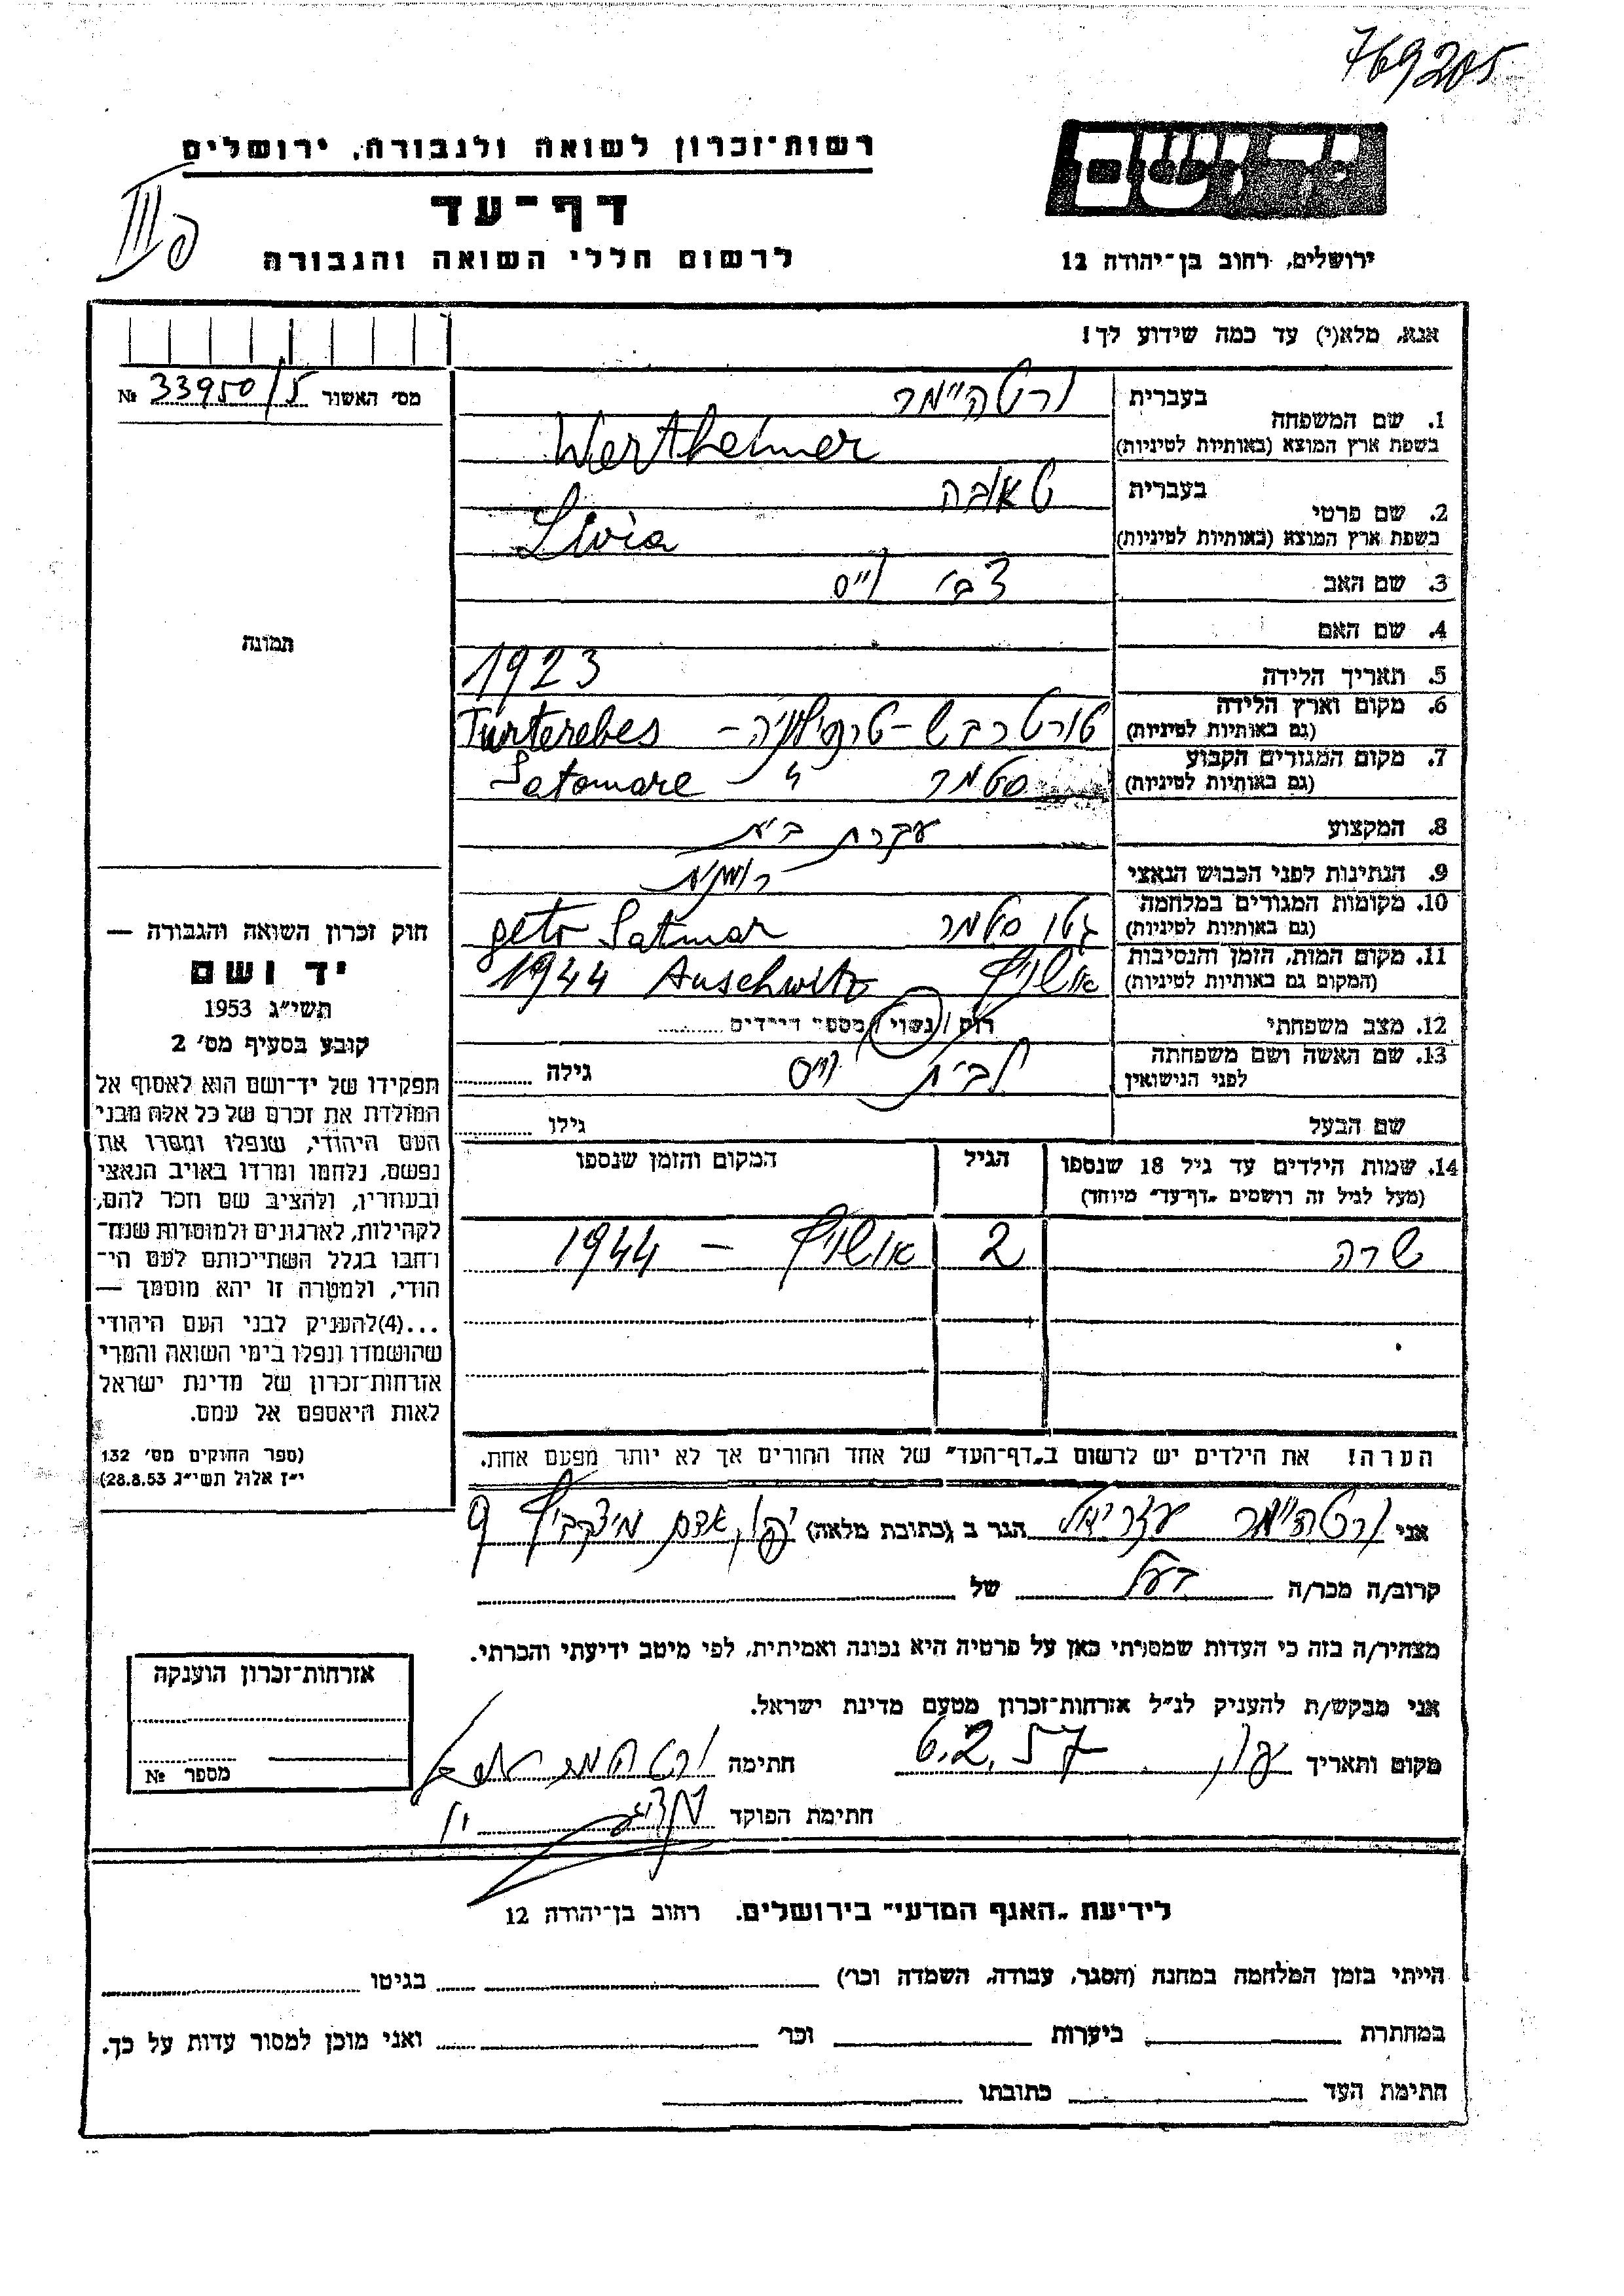 769205
רשות־זכרון לשואה ולגבורה, ירושלים
יד ושם
דף־עד
לרשום חללי השואה והגבורה
ירושלים, רחוב בן־יהודה 12
אנא, מלא(י) עד כמה שידוע לך!
מס׳ האשור 33950/5 №
בעברית ורטהיימר
1. שם המשפחה
בשפת ארץ המוצא (באותיות לטיניות) Wertheimer
בעברית טאובה
2. שם פרטי
בשפת ארץ המוצא (באותיות לטיניות) Livia
3. שם האב צבי וייס
4. שם האם
תמונה
5. תאריך הלידה 1923
6. מקום וארץ הלידה
(גם באותיות לטיניות) טורטרבש - טרנסילוניה - Turterebes
7. מקום המגורים הקבוע
(גם באותיות לטיניות) סטמר " Satomare
8. המקצוע עקרת בית
9. הנתינות לפני הכבוש הנאצי רומנית
10. מקומות המגורים במלחמה
(גם באותיות לטיניות) גטו סטמר geto Satmar
11. מקום המות, הזמן והנסיבות
(המקום גם באותיות לטיניות) אושויץ Auschwitz 1944
12. מצב משפחתי רוק / נשוי / מספר הילדים
13. שם האשה ושם משפחתה
לפני הנישואין לבית וייס גילה
שם הבעל גילו
14. שמות הילדים עד גיל 18 שנספו הגיל המקום והזמן שנספו
(מעל לגיל זה רושמים „דף־עד״ מיוחד)
שרה 2 אושויץ - 1944
הערה! את הילדים יש לרשום ב„דף־העד״ של אחד ההורים אך לא יותר מפעם אחת.
חוק זכרון השואה והגבורה —
יד ושם
תשי״ג 1953
קובע בסעיף מס׳ 2
תפקידו של יד־ושם הוא לאסוף אל
המולדת את זכרם של כל אלה מבני
העם היהודי, שנפלו ומסרו את
נפשם, נלחמו ומרדו באויב הנאצי
ובעוזריו, ולהציב שם וזכר להם,
לקהילות, לארגונים ולמוסדות שנח־
רחבו בגלל השתייכותם לעם הי־
הודי, ולמטרה זו יהא מוסמך —
...(4)להעניק לבני העם היהודי
שהושמדו ונפלו בימי השואה והמרי
אזרחות־זכרון של מדינת ישראל
לאות היאספם אל עמם.
(ספר החוקים מס׳ 132
י״ז אלול תשי״ג 28.8.53)
אני ורטהיימר עזריאל הגר ב (כתובת מלאה) יפו, אדם מיצקביץ 9
קרוב/ה מכר/ה בעל של
מצהיר/ה בזה כי העדות שמסרתי כאן על פרטיה היא נכונה ואמיתית, לפי מיטב ידיעתי והכרתי.
אני מבקש/ת להעניק לנ״ל אזרחות־זכרון מטעם מדינת ישראל.
מקום ותאריך יפו, 6.2.57 חתימה
חתימת הפוקד
אזרחות־זכרון הוענקה
מספר №
לידיעת „האגף המדעי״ בירושלים. רחוב בן־יהודה 12
הייתי בזמן המלחמה במחנה (הסגר, עבודה, השמדה וכו׳) בגיטו
במחתרת ביערות וכו׳ ואני מוכן למסור עדות על כך.
חתימת העד כתובתו